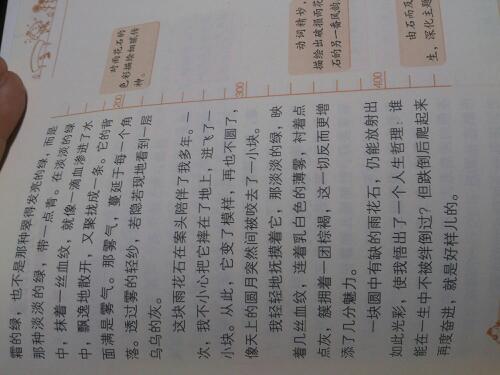 对雨花石的
色彩描绘细腻传
神。
动词精妙，
描绘出破损雨花
石的另一番风韵
由石而及
生，深化主题
200
300
400
霜的绿，也不是那种翠得发亮的绿，而是
那种淡淡的绿，带一点青。在淡淡的绿
中，抹着一丝血纹，就像一滴血渗进了水
中，飘逸地散开，又聚拢成一条。它的背
面满是雾气。那雾气，蔓延于每一个角
落。透过雾的轻纱，若隐若现地看到一层
乌乌的灰。
这块雨花石在案头陪伴了我多年。一
次，我不小心把它摔在了地上，迸飞了一
小块。从此，它变了模样，再也不圆了，
像天上的圆月突然间被咬去了一小块。
我轻轻地抚摸着它，那淡淡的绿，映
着几丝血纹，连着乳白色的薄雾，衬着点
点灰，簇拥着一团棕褐，这一切反而更增
添了几分魅力。
一块圆中有缺的雨花石，仍能放射出
如此光彩，使我悟出了一个人生哲理：谁
能在一生中不被绊倒过？但跌倒后爬起来
再度奋进，就是好样儿的。